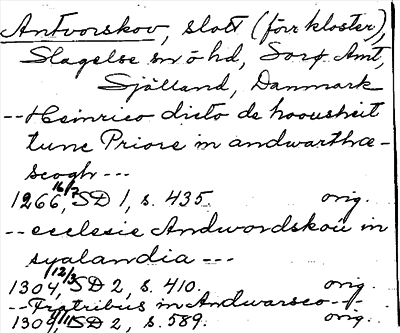 Antvorskov, slott (förr kloster),
Slagelse sn o hd, Sorø Amt,
Själland, Danmark
-- Heinrico dicto de hoousheit
tunc Priore in andwarthæ-
scogh ---
1266 16/7, SD 1, s. 435. orig.
-- ecclesie Andwordskou in
syalandia ---
1304 12/3, SD 2, s. 410. orig.
-- Fratribus in Andwarsco --
1309 SD 2, s. 589. orig.